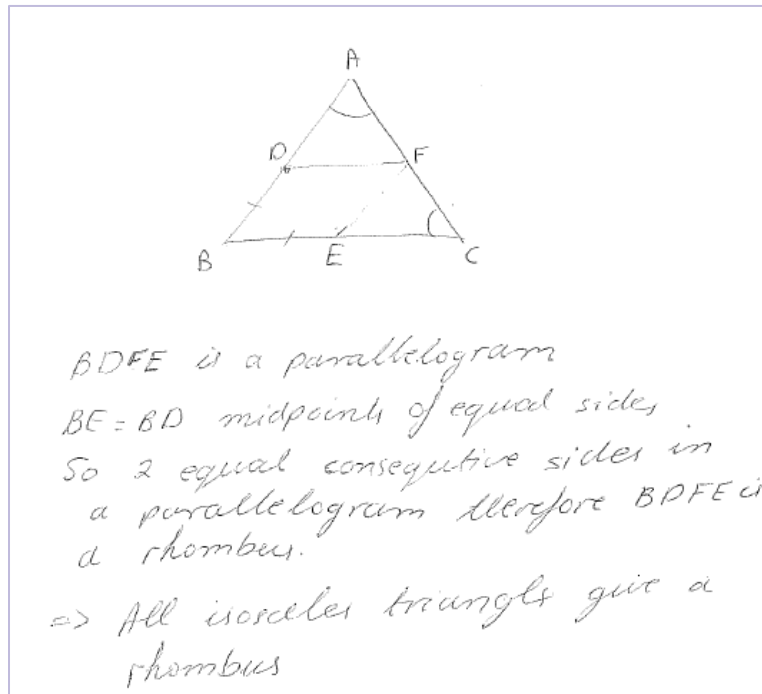 A
D
F
B
E
C
BDFE is a parallelogram
BE = BD midpoints of equal sides
So 2 equal consequtive sides in
a parallelogram therefore BDFE is
a rhombus.
=> All isosceles triangls give a
rhombus